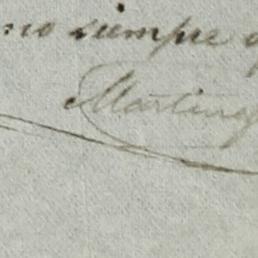 no siempre
Martinez